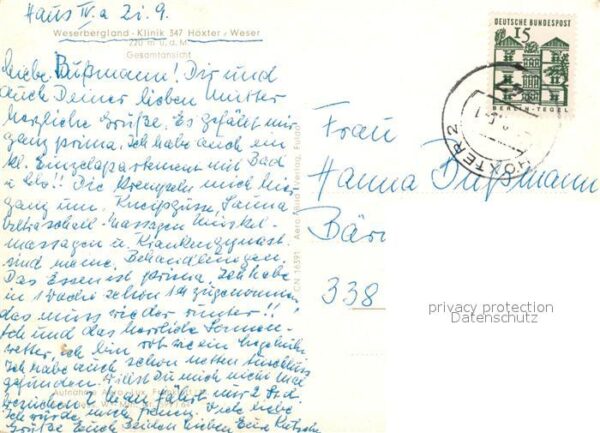 Haus IV a Zi. 9.
Weserbergland - Klinik 347 Höxter, Weser
220 m ü. d. M
Gesamtansicht
Liebe Bußmann! Dir und
auch Deiner lieben Mutter
herzliche Grüße. Es gefällt mir
ganz prima. Ich habe auch ein
kl. Einzelapartement mit Bad
u. Clo!! Die krempeln mich hier
ganz um. Kneipgüsse, Sauna
Ultraschall-Massagen Muskel-
massagen u. Krankengymnast.
sind meine Behandlungen.
Das Essen ist prima. Ich habe
in 1 Woche schon zugenommen
das muss wieder runter!!
Ich und das herrliche Sonnen-
wetter, ich bin rot wie ein
Ich habe auch schon netten Anschluss
gefunden. Willst Du mich nicht mal
besuchen? Man fährt nur 2 Std.
Ich würde mich freuen. Viele liebe
Grüße Euch beiden lieben Eure
CN 16391 Aero Bild Verlag, Fulda
DEUTSCHE BUNDESPOST
15
BERLIN-TEGEL
HÖXTER 2
Frau
Hanna Bußmann
Bär
338
privacy protection
Datenschutz